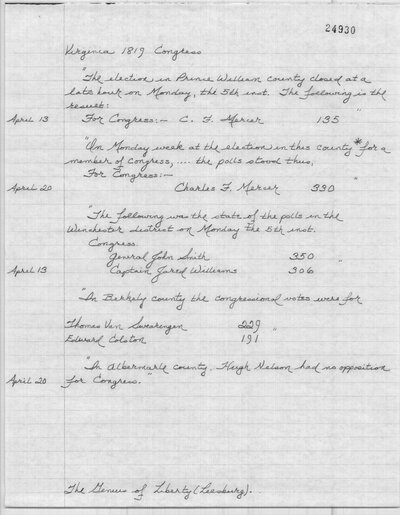 24930
Virginia 1819 Congress
"The election in Prince William county closed at a
late hour on Monday, the 5th inst. The following is the
result:
April 13 For Congress:- C. F. Mercer 135 "
"On Monday week at the election in this county * for a
member of Congress, .... the polls stood thus,
For Congress:-
April 20 Charles F. Mercer 390 "
"The following was the state of the polls in the
Winchester district on Monday the 5th inst.
Congress.
General John Smith 350
April 13 Captain Jared Williams 306 "
"In Berkely county the congressional votes were for
Thomas Van Swearengen 229 "
Edward Colston 191
"In Albermarle county, Hugh Nelson had no opposition
April 20 for Congress."
The Genius of Liberty (Leesburg).